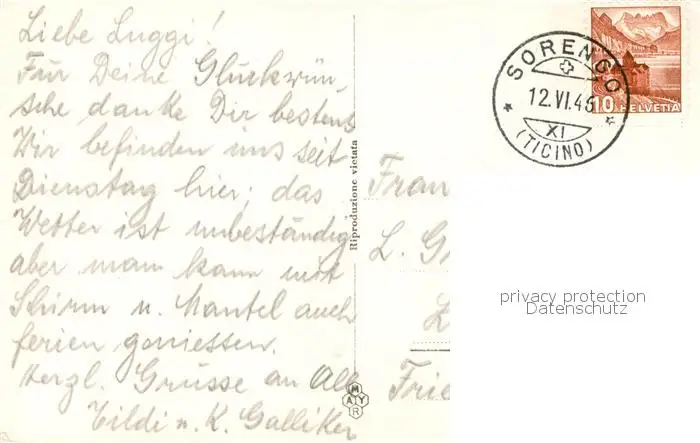 Liebe Luggi!
Für Deine Glückwün-
sche danke Dir bestens
Wir befinden uns seit
Dienstag hier; das
Wetter ist unbeständig
aber man kann mit
Schirm u. Mantel auch
ferien geniessen.
Herzl. Grüsse an Alle
Tildi u. K. Galliker
Riproduzione vietata
MAYR
SORENGO
12.VI.46
XI
(TICINO)
10 HELVETIA
Frau
L. G
Frie
privacy protection
Datenschutz